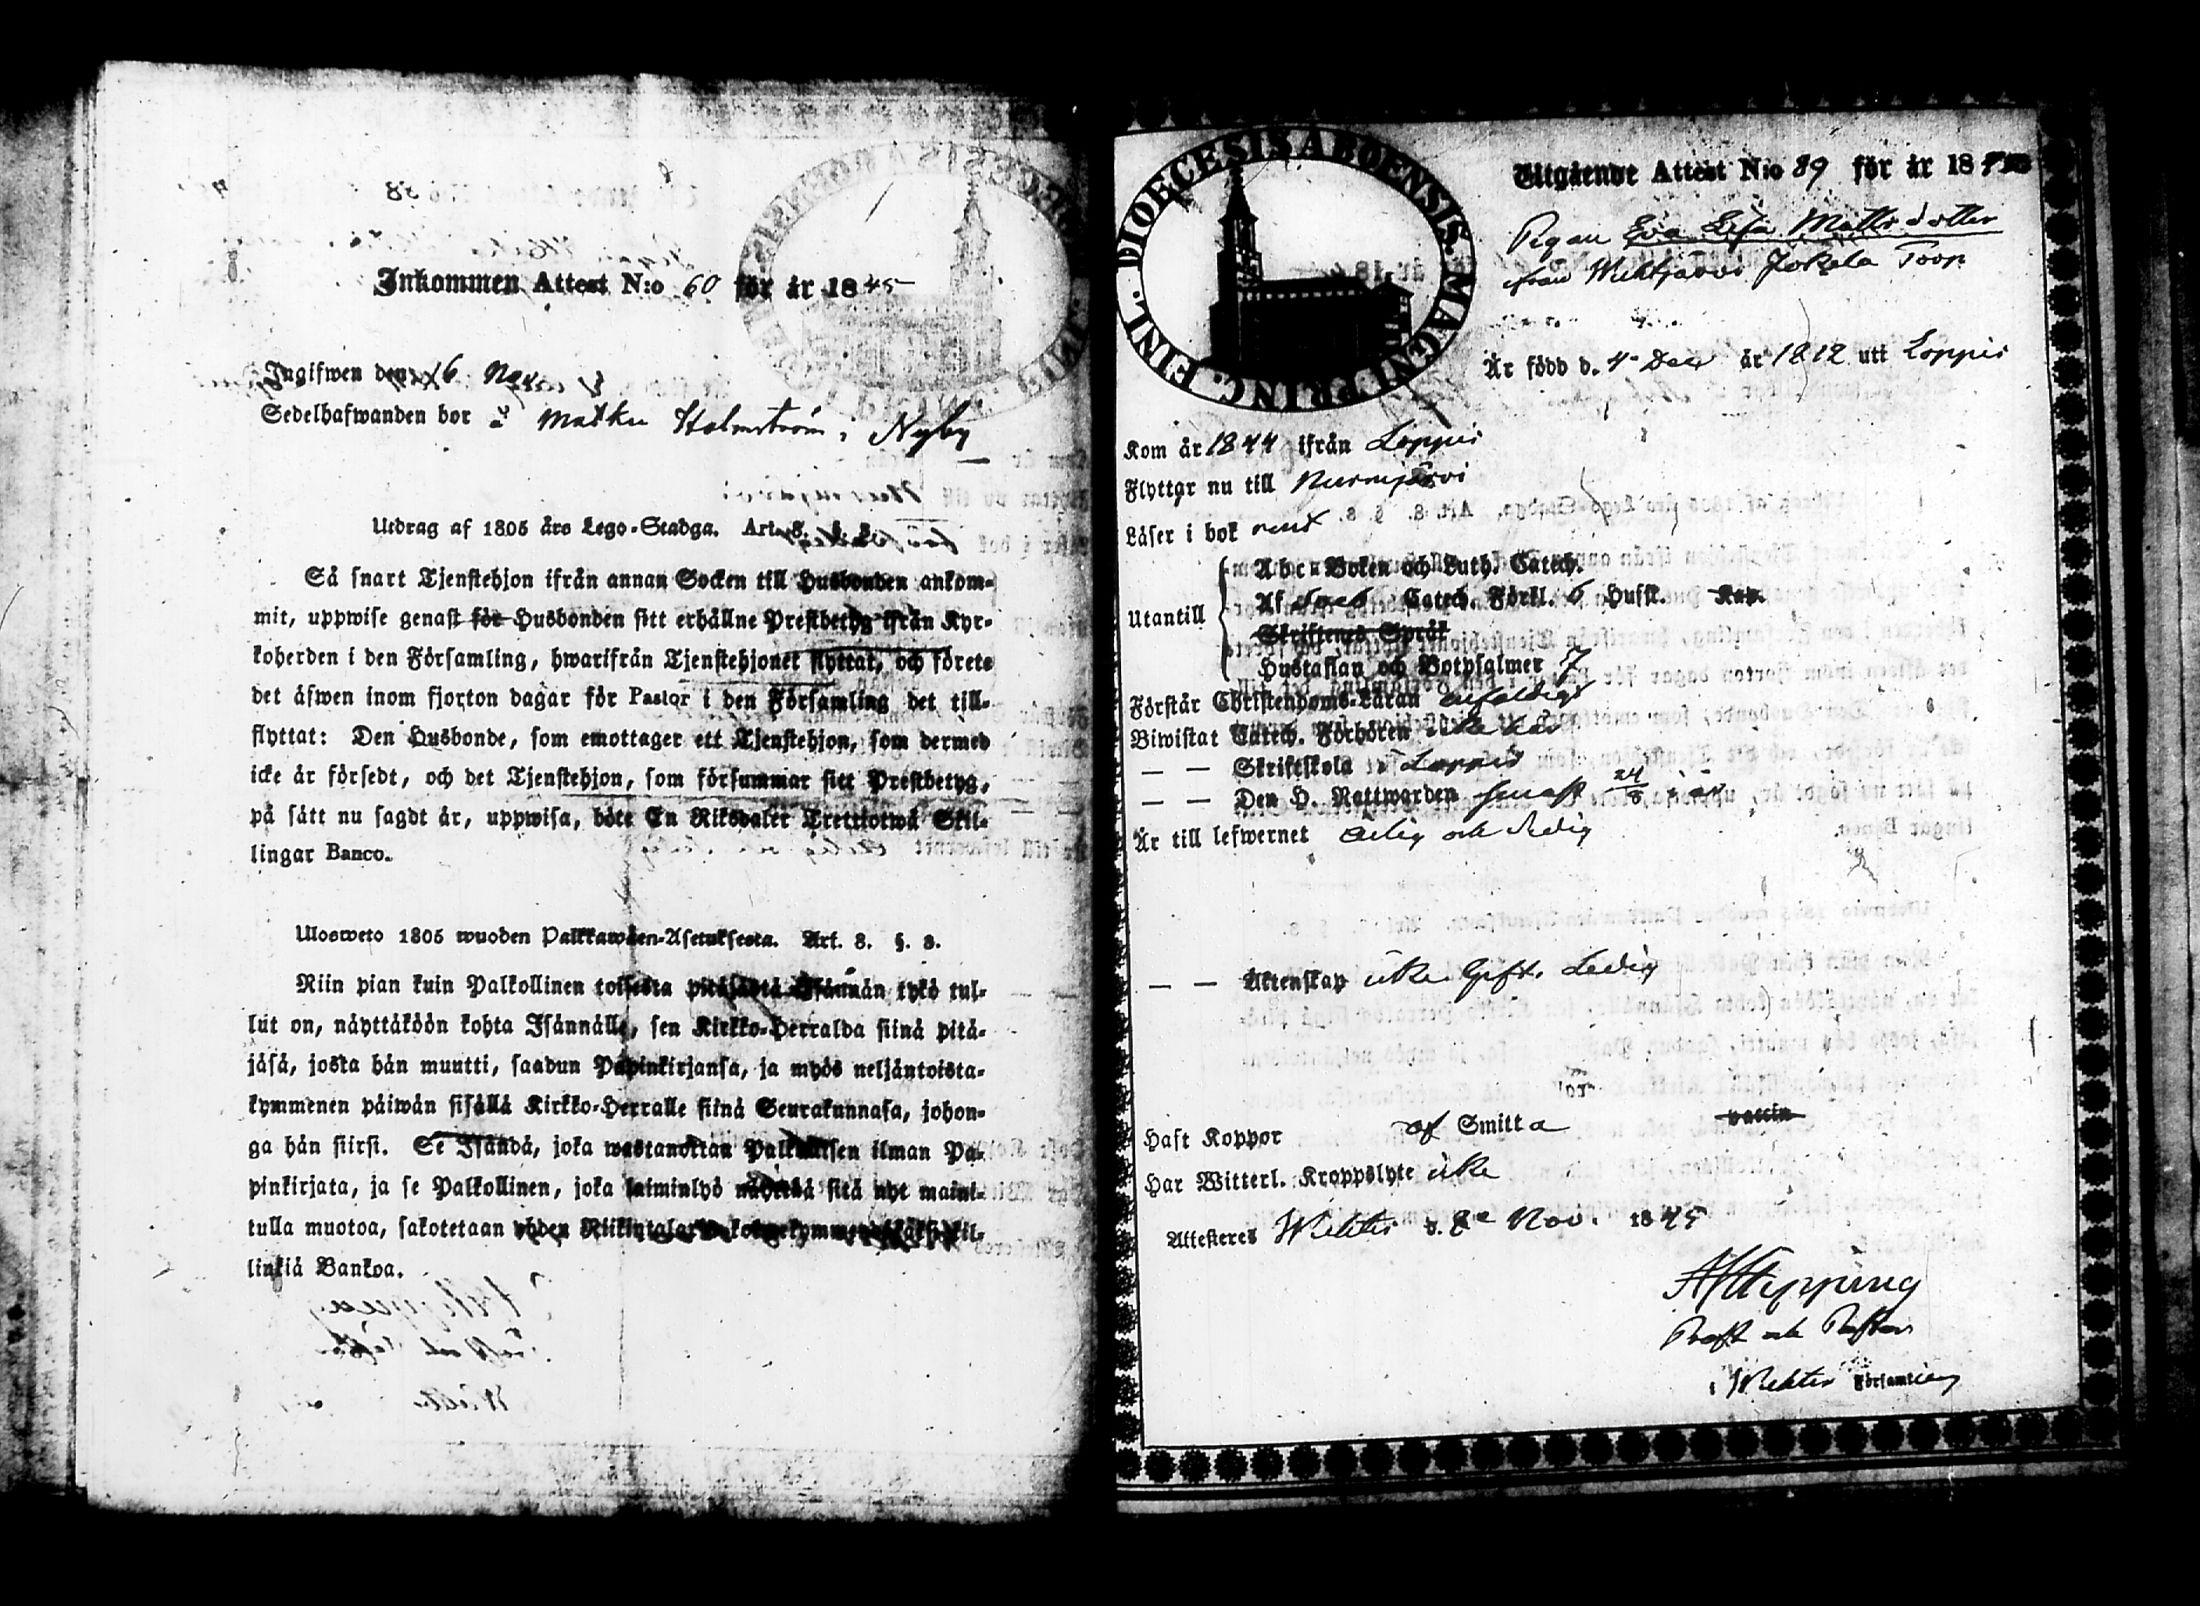 Inkommen Attest N:o 60 för år 1845
Ingifwen den 16 Nov
Sedelhafwanden bor å Holmström i Nyby
Utdrag af 1805 års Lego-Stadga. Art. 8. §. 8.
Så snart Tjenstehjon ifrån annan Socken till Husbonden ankom-
mit, uppwise genast för Husbonden sitt erhållne Prestbetyg ifrån Kyr-
koherden i den Församling, hwarifrån Tjenstehjonet flyttat, och förete
det äfwen inom fjorton dagar för Pastor i den Församling det till-
flyttat: Den Husbonde, som emottager ett Tjenstehjon, som dermed
icke är försedt, och det Tjenstehjon, som försummar sitt Prestbetyg,
på sätt nu sagdt är, uppwisa, böte En Riksdaler Trettiotwå Skil-
lingar Banco.
Ulosweto 1805 wuoden Palkkawäen-Asetuksesta. Art. 8. §. 8.
Niin pian kuin Palkollinen toisesta pitäjästä Isännän tykö tul-
lut on, näyttäköön kohta Isännälle, sen Kirkko-Herralda siinä pitä-
jäsä, josta hän muutti, saadun Papinkirjansa, ja myös neljäntoista-
kymmenen päiwän sisällä Kirkko-Herralle siinä Seurakunnasa, johon-
ga hän siirsi. Se Isändä, joka wastanottaa Palkollisen ilman Pa-
pinkirjata, ja se Palkollinen, joka laiminlyö näyttää sitä nyt maini-
tulla muotoa, sakotetaan yhden Riikintalarin kolmekymmendäkaksi kil-
linkiä Bankoa.
DIOECESIS ABOENSIS. MAGNI PRINC. FINL.
Utgående Attest N:o 89 för år 1845
Pigan Eva Lisa Mattsdotter
från Wichtjärvi Jokela Torp
Är född d. 4 Dec år 1812 utt Loppis
Kom år 1844 ifrån Loppis
Flyttar nu till Nurmijärvi
Läser i bok rent
Abc-Boken och Luth. Catech.
Utantill Af Sveb Catech. Förkl. 6 Hufst. Kap.
Skriftenes Språk
Hustaflan och Botpsalmer 7
Förstår Christendoms-Läran enfaldigt
Biwistat Catech. Förhören icke här
— — Skriftskola i Loppis
— — Den H. Nattwarden senast 24/8 i år
Är till lefwernet ärlig och redig
— — Äktenskap icke Gift. Ledig
Haft Koppor af Smitta vaccin
Har Witterl. Kroppslyte icke
Attesteres Wichtis d. 8e Nov. 1845
Prost och Pastor
i Wichtis Församling